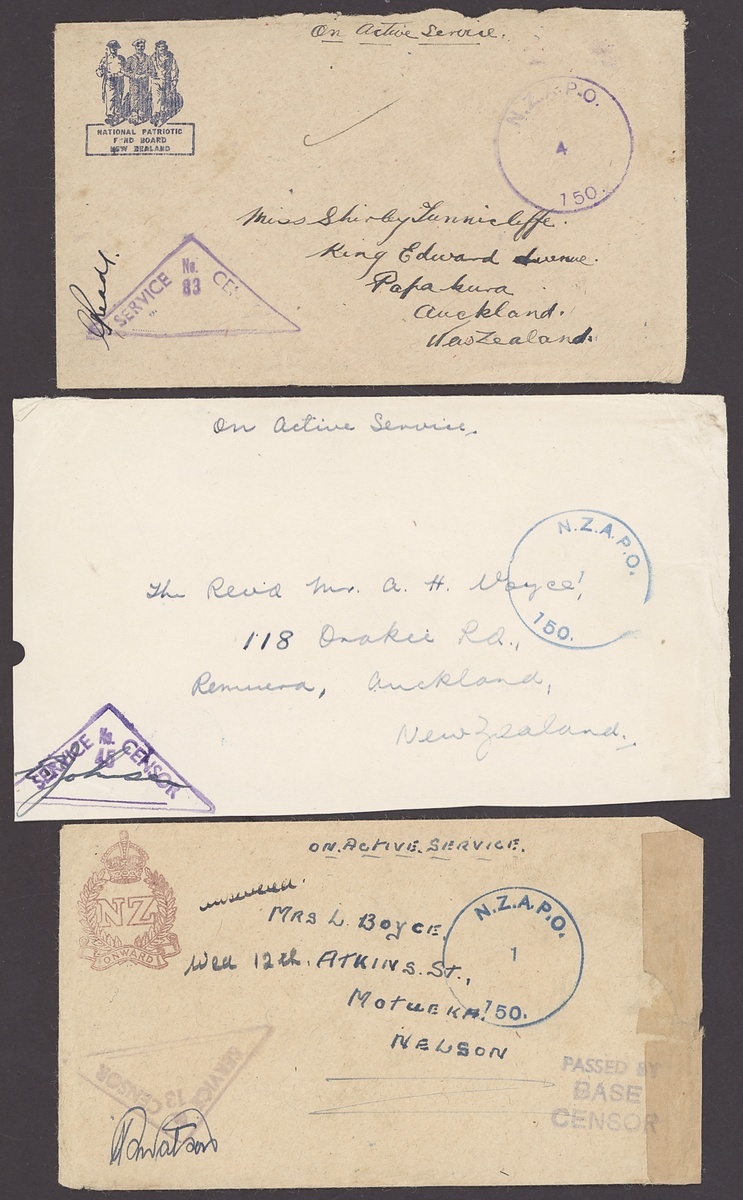 On Active Service.
NATIONAL PATRIOTIC
F ND BOARD
NEW ZEALAND
N.Z.A.P.O.
4
150.
Miss Shirley Tunnicliffe.
King Edward Avenue.
Papakura
Auckland.
New Zealand.
SERVICE No. 83 CEN
On Active Service.
N.Z.A.P.O.
150.
The Rev'd Mr. A. H. Voyce,
118 Orakei Rd.,
Remuera, Auckland,
New Zealand.
SERVICE No. 45 CENSOR
ON ACTIVE SERVICE.
NZ
ONWARD
answered.
N.Z.A.P.O.
1
150.
MRS L. BOYCE,
Wed 12th. ATKINS. ST.,
MOTUEKA.
NELSON
SERVICE 13 CENSOR
PASSED BY
BASE
CENSOR